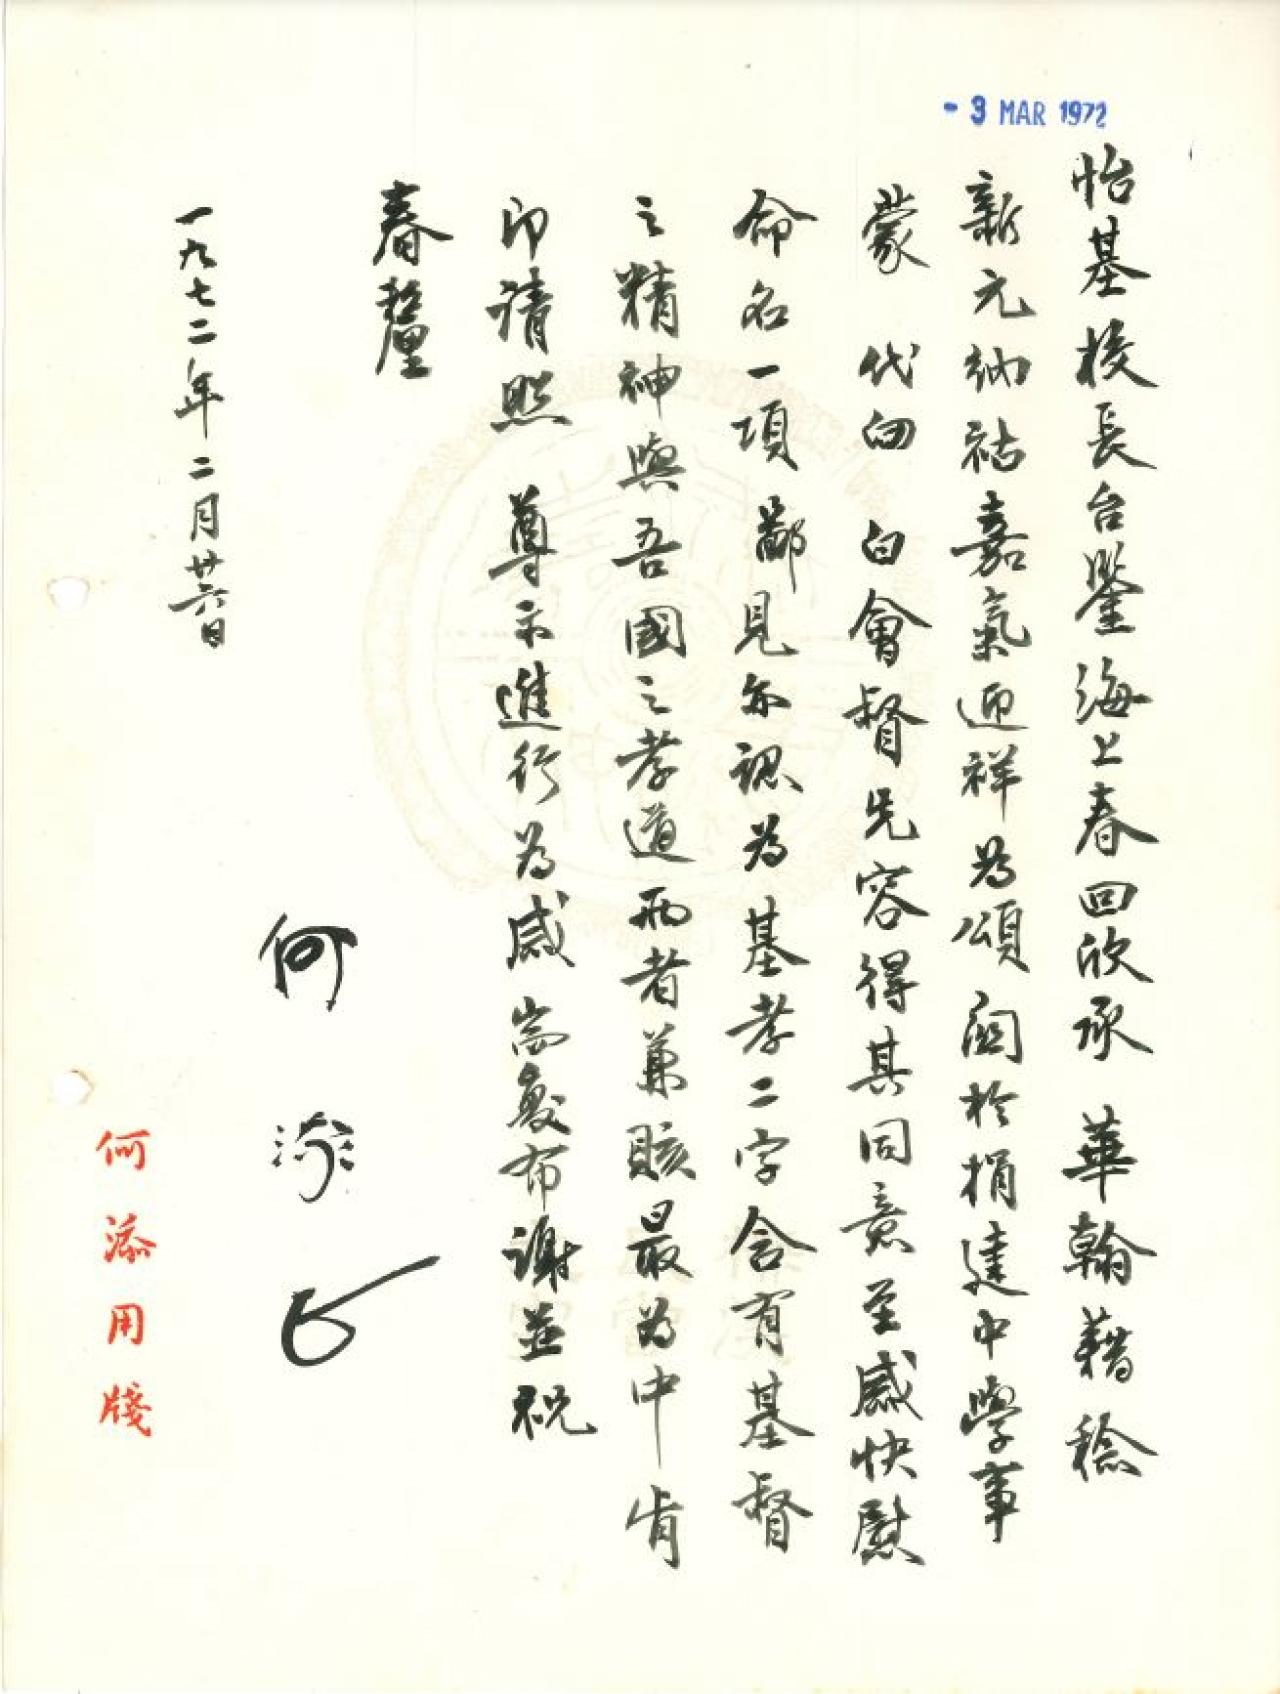 - 3 MAR 1972
怡基校長台鑒海上春回欣承 華翰藉稔
新元納祜嘉氣迎祥為頌關於捐建中學事
蒙 代向 白會督先容得其同意至感快慰
命名一項鄙見亦認為基孝二字含有基督
之精神與吾國之孝道兩者兼賅最為中肯
即請照 尊示進行為感耑敬布謝並祝
春釐
何添
一九七二年二月廿六日
何添用牋